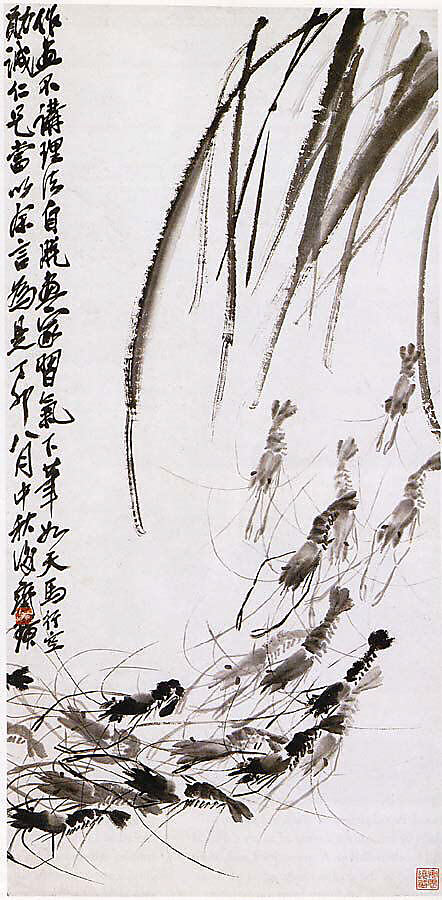 作畫不講理法自脫畫家習氣下筆如天馬行空
誠仁兄當以余言為是丁卯八月中秋後齊璜